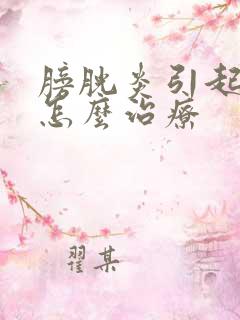 膀胱炎引起
怎麼治療
翟某